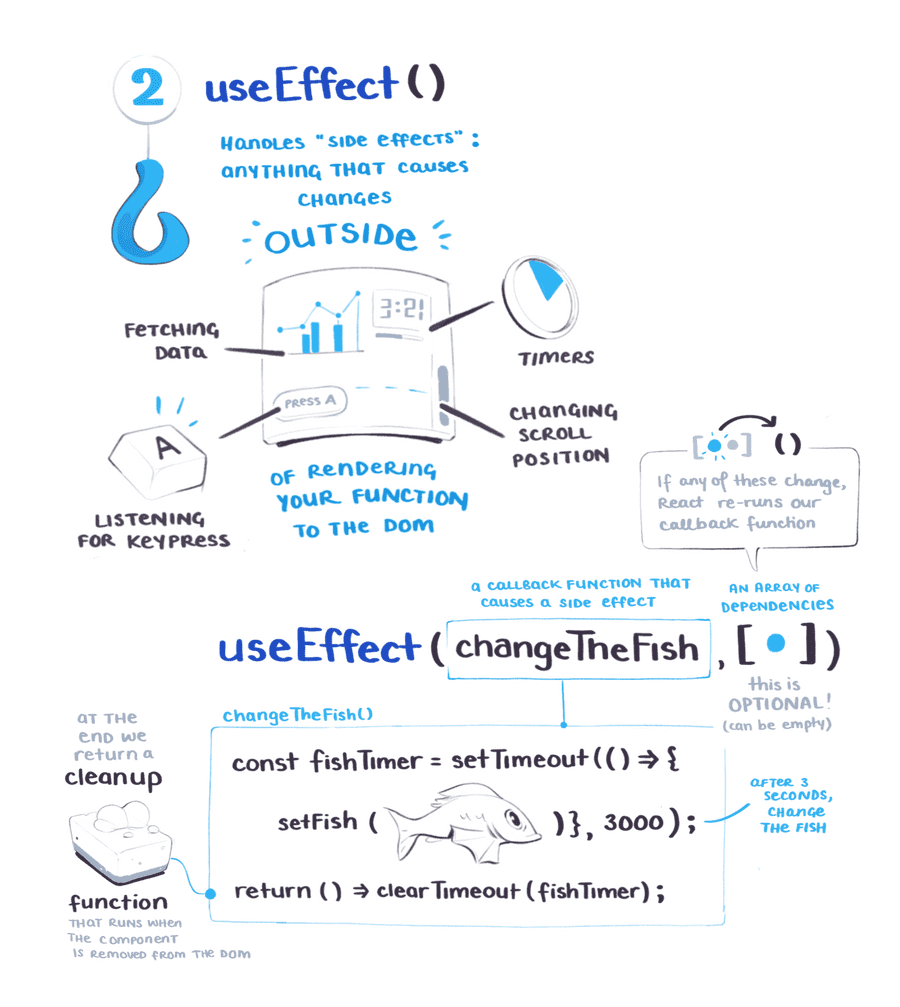 2
useEffect()
Handles "side effects":
anything that causes
changes
OUTSIDE
3:21
Fetching
Data
Timers
PRESS A
A
Changing
Scroll
Position
Listening
for keypress
of rendering
your function
to the DOM
[ ] ()
If any of these change,
React re-runs our
callback function
a callback function that
causes a side effect
an array of
dependencies
useEffect(changeTheFish, [•])
this is
OPTIONAL!
(can be empty)
changeTheFish()
at the
end we
return a
cleanup
function
that runs when
the component
is removed from the DOM
const fishTimer = setTimeout(() => {
setFish ( )}, 3000);
return () => clearTimeout(fishTimer);
after 3
seconds,
change
the fish